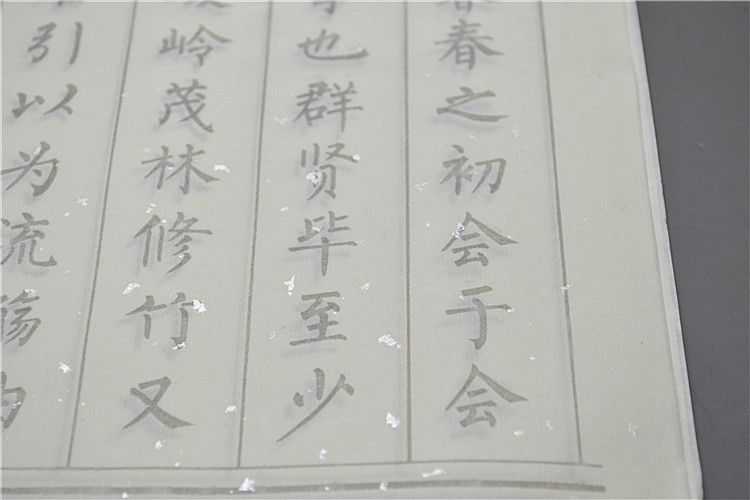 春之初会于会
也群贤毕至少
岭茂林修竹又
引以为流